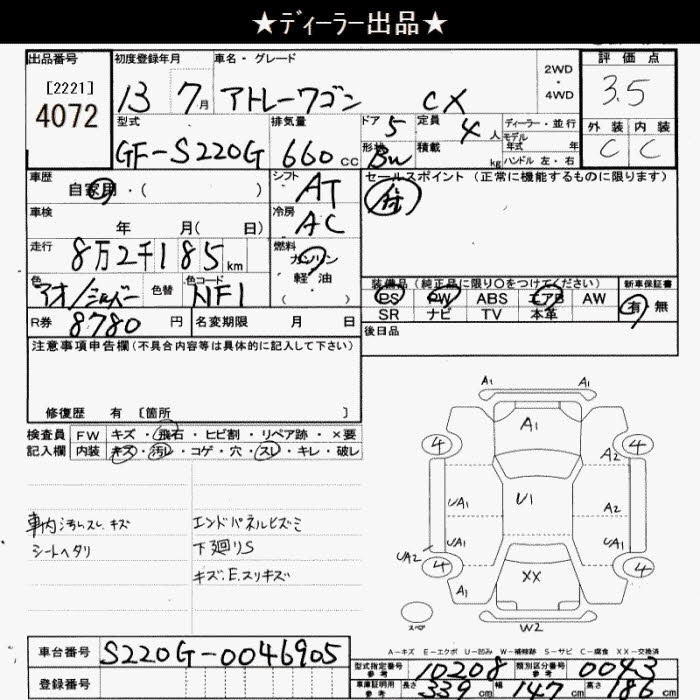 ★ディーラー出品★
出品番号 初度登録年月 車名・グレード 2WD・4WD 評価点
[2221] 4072 13 7月 アトレーワゴン CX 3.5
型式 排気量 ドア 定員 ディーラー・並行 外装 内装
GF-S220G 660cc 5 4人 モデル年式 年 C C
形状 積載 kg ハンドル 左・右
BW
車歴 シフト セールスポイント(正常に機能するものに限ります)
自家用・( ) AT
車検 冷房
年 月( 日) AC
走行 燃料
8万2千185km ガソリン
色 色替 色コード 軽油
アオ/シルバー NF1 ( )
装備品(純正品に限り〇をつけてください) 新車保証書
PS PW ABS エアB AW 有・無
SR ナビ TV 本革
R券 8780円 名変期限 月 日
後日品
注意事項申告欄(不具合内容等は具体的に記入して下さい)
修復歴 有 〔箇所 〕
検査員 FW キズ・飛石・ヒビ割・リペア跡・×要
記入欄 内装 キズ・汚れ・コゲ・穴・スレ・キレ・破レ
車内汚れスレ キズ
シートヘタリ
エンドパネルヒズミ
下廻りS
キズ.E.スリキズ
A1 A1
A1
4 4
A2
UA1 U1 A2
UA1 UA1
UA2
4 4
A1 XX
スペア
W2
A-キズ E-エクボ U-凹み W-補修跡 S-サビ C-腐食 XX-交換済
車台番号 S220G-0046905
登録番号
型式指定番号 参考 10208 類別区分番号 参考 0043
車庫証明用 参考 長さ 339cm 幅 147cm 高さ 187cm